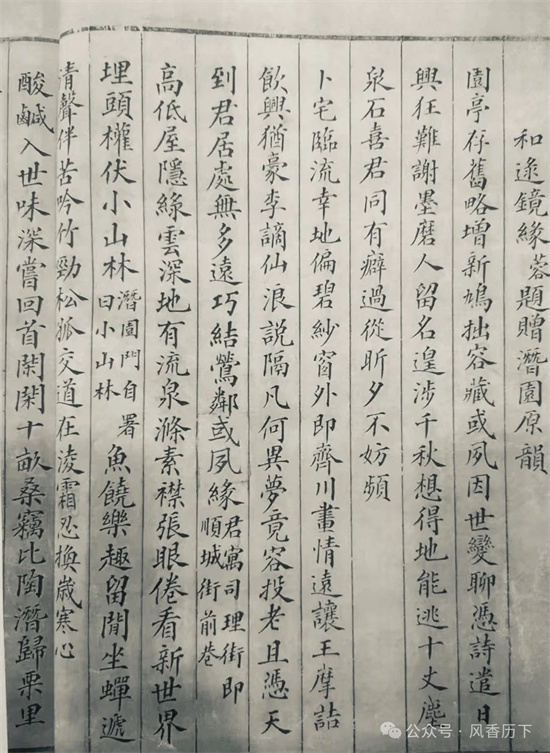 和逯鏡緣蓉題贈潛園原韻
園亭存舊略增新鳩拙容藏或夙因世變聊憑詩遣日
興狂難謝墨磨人留名遑涉千秋想得地能逃十丈塵
泉石喜君同有癖過從昕夕不妨頻
卜宅臨流幸地偏碧紗窗外即齊川畫情遠讓王摩詰
飲興猶豪李謫仙浪說隔凡何異夢竟容投老且憑天
到君居處無多遠巧結鶯鄰或夙緣君寓司理街即順城街前巷
高低屋隱綠雲深地有流泉滌素襟張眼倦看新世界
埋頭權伏小山林潛園門自署曰小山林魚饒樂趣留閒坐蟬遞
清聲伴苦吟竹勁松孤交道在淩霜忍換歲寒心
酸鹹入世味深嘗回首閑閑十畝桑竊比陶潛歸栗里
公众号·风香历下